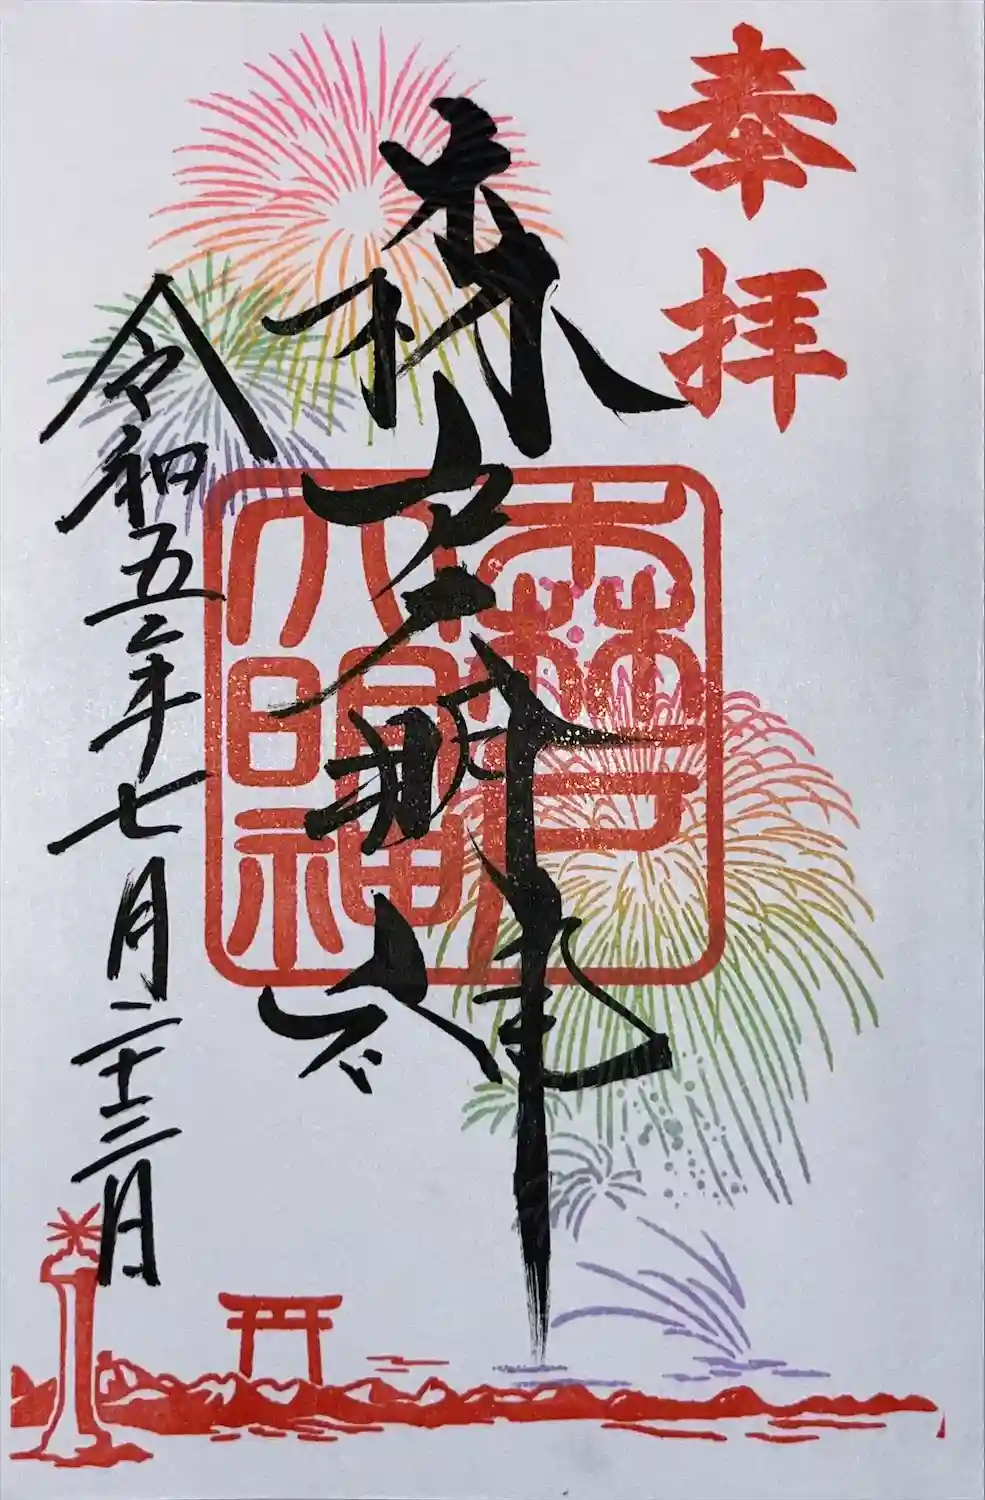 奉拝
森戸大明神
森戸大明神
令和五年七月二十三日